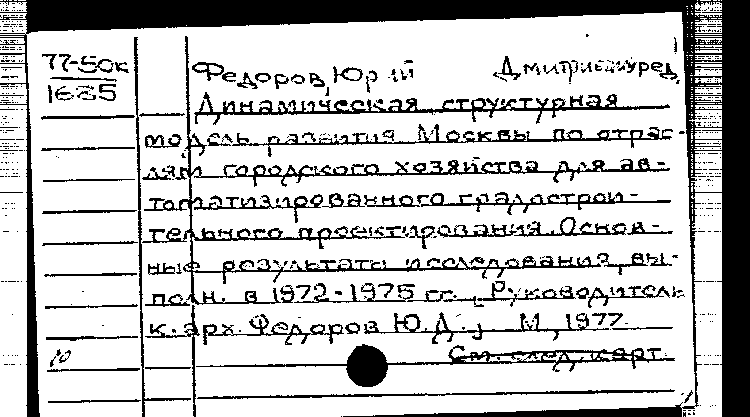 77-50к
1685
Федоров, Юрий Дмитриевич, ред.
Динамическая структурная
модель развития Москвы по отрас-
лям городского хозяйства для ав-
томатизированного градострои-
тельного проектирования. Основ-
ные результаты исследования, вы-
полн. в 1972-1975 гг., Руководитель
к. арх. Федоров Ю.Д.; М, 1977
См. след. карт.
10